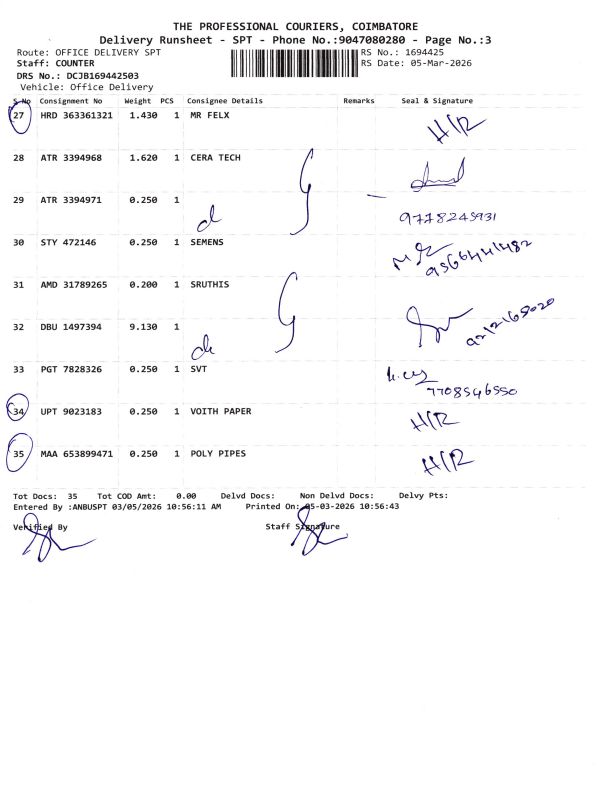 THE PROFESSIONAL COURIERS, COIMBATORE
Delivery Runsheet - SPT - Phone No.:9047080280 - Page No.:3
Route: OFFICE DELIVERY SPT RS No.: 1694425
Staff: COUNTER RS Date: 05-Mar-2026
DRS No.: DCJB169442503
Vehicle: Office Delivery
S No Consignment No Weight PCS Consignee Details Remarks Seal & Signature
27 HRD 363361321 1.430 1 MR FELX H/R
28 ATR 3394968 1.620 1 CERA TECH
29 ATR 3394971 0.250 1 do
9778245931
30 STY 472146 0.250 1 SEMENS
9566441482
31 AMD 31789265 0.200 1 SRUTHIS
32 DBU 1497394 9.130 1 do
33 PGT 7828326 0.250 1 SVT
7708546550
34 UPT 9023183 0.250 1 VOITH PAPER H/R
35 MAA 653899471 0.250 1 POLY PIPES H/R
Tot Docs: 35 Tot COD Amt: 0.00 Delvd Docs: Non Delvd Docs: Delvy Pts:
Entered By :ANBUSPT 03/05/2026 10:56:11 AM Printed On: 05-03-2026 10:56:43
Verified By Staff Signature